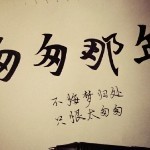 匆匆那年
不悔梦归处
只恨太匆匆